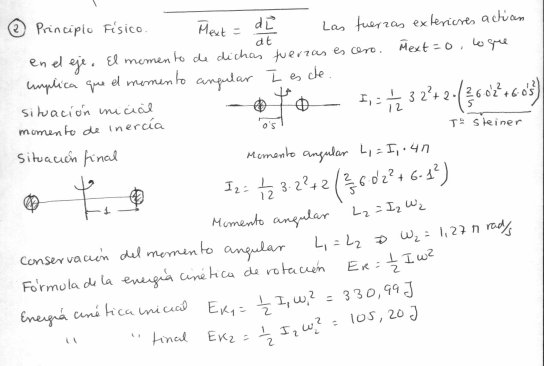 ② Principio Físico. M̄ext = dL⃗/dt Las fuerzas exteriores actúan
en el eje. El momento de dichas fuerzas es cero. M̄ext = 0, lo que
implica que el momento angular L̄ es cte.
situación inicial
momento de inercia
0'5
I₁ = 1/12 3 2² + 2 · (2/5 6 0'2² + 6 · 0'5²)
Tª Steiner
Situación final
1
Momento angular L₁ = I₁ · 4π
I₂ = 1/12 3 · 2² + 2 (2/5 6 0'2² + 6 · 1²)
Momento angular L₂ = I₂ ω₂
Conservación del momento angular L₁ = L₂ ⇒ ω₂ = 1,27 π rad/s
Fórmula de la energía cinética de rotación EK = 1/2 I ω²
Energía cinética inicial EK₁ = 1/2 I₁ ω₁² = 330,99 J
" " final EK₂ = 1/2 I₂ ω₂² = 105,20 J